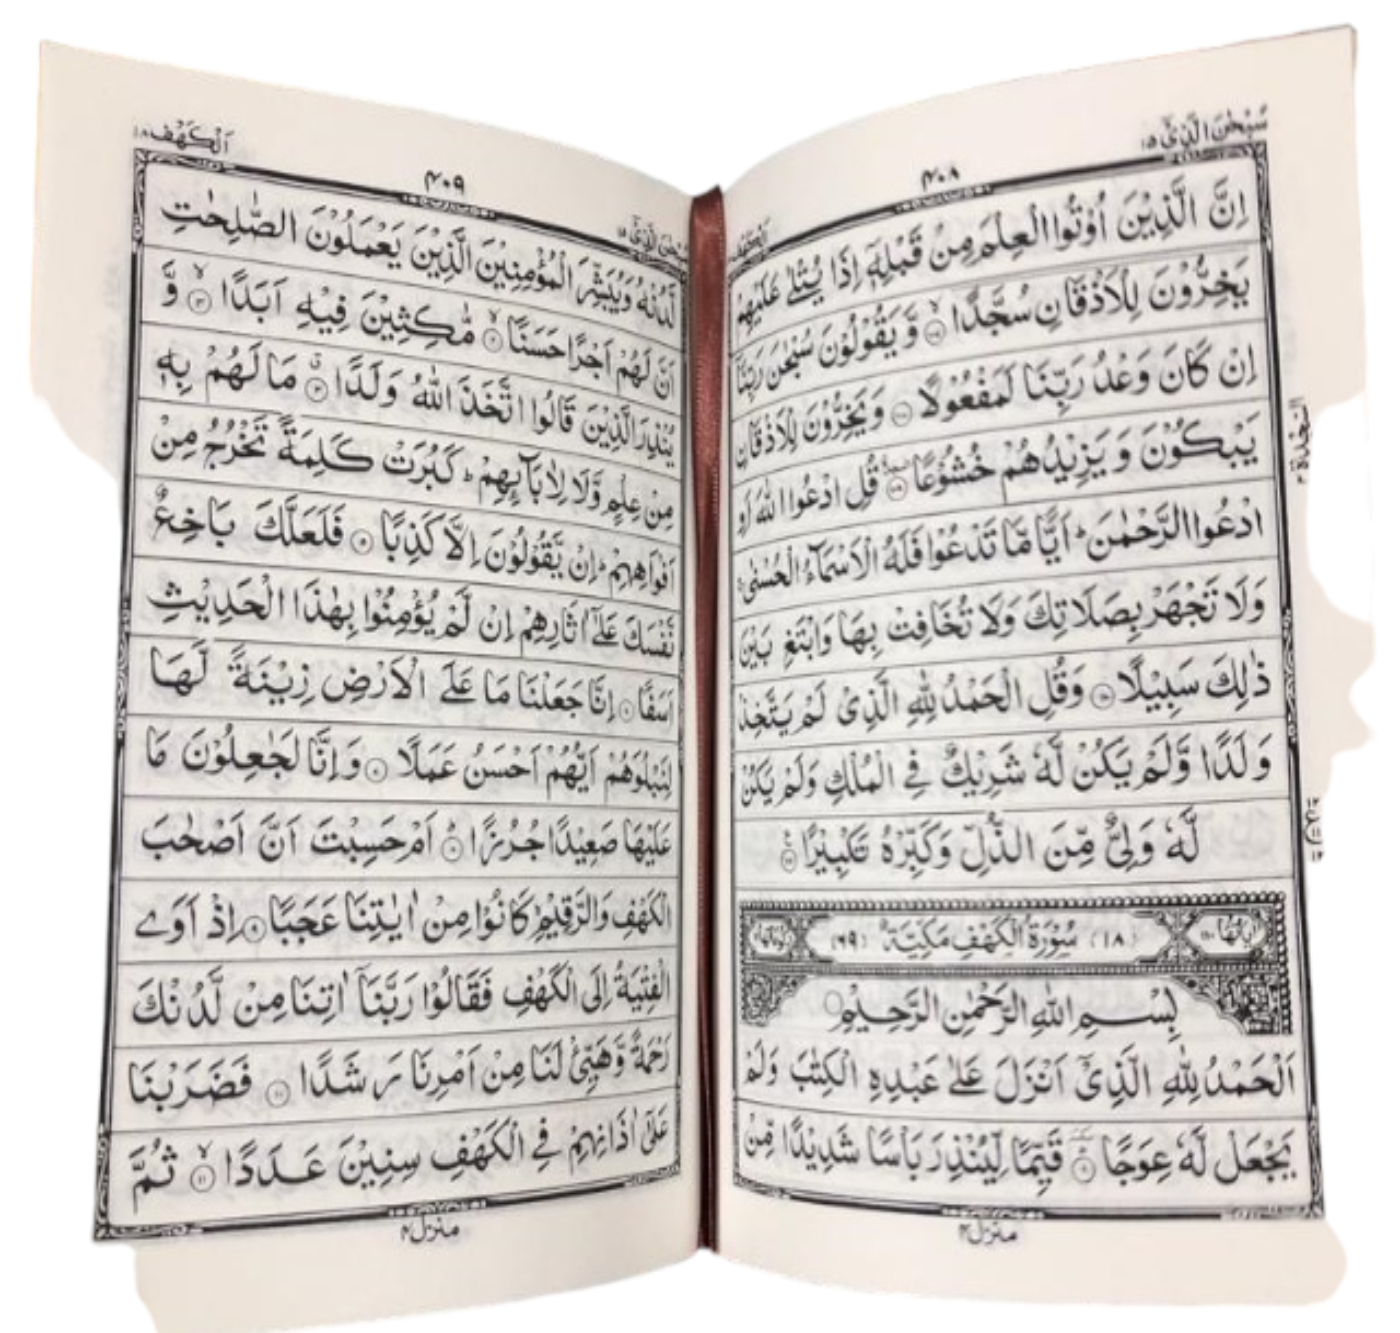 سُبْحٰنَ الَّذِیْۤ ۱۵
۴۰۸
اَلْكَهْف
اِنَّ الَّذِیْنَ اُوْتُوا الْعِلْمَ مِنْ قَبْلِهٖۤ اِذَا یُتْلٰی عَلَیْهِمْ
یَخِرُّوْنَ لِلْاَذْقَانِ سُجَّدًا ۙ۝۱۰۷ وَّ یَقُوْلُوْنَ سُبْحٰنَ رَبِّنَاۤ
اِنْ كَانَ وَعْدُ رَبِّنَا لَمَفْعُوْلًا ۝۱۰۸ وَیَخِرُّوْنَ لِلْاَذْقَانِ
یَبْكُوْنَ وَ یَزِیْدُهُمْ خُشُوْعًا ۝۱۰۹ قُلِ ادْعُوا اللّٰهَ اَوِ
ادْعُوا الرَّحْمٰنَ ؕ اَیًّا مَّا تَدْعُوْا فَلَهُ الْاَسْمَآءُ الْحُسْنٰی ۚ
وَلَا تَجْهَرْ بِصَلَاتِكَ وَلَا تُخَافِتْ بِهَا وَابْتَغِ بَیْنَ
ذٰلِكَ سَبِیْلًا ۝۱۱۰ وَقُلِ الْحَمْدُ لِلّٰهِ الَّذِیْ لَمْ یَتَّخِذْ
وَلَدًا وَّلَمْ یَكُنْ لَّهٗ شَرِیْكٌ فِی الْمُلْكِ وَلَمْ یَكُنْ
لَّهٗ وَلِیٌّ مِّنَ الذُّلِّ وَكَبِّرْهُ تَكْبِیْرًا ۝۱۱۱
اٰیَاتُهَا ۱۱۰ (۱۸) سُوْرَةُ الْكَهْفِ مَكِّیَّةٌ (۶۹) رُكُوْعَاتُهَا
بِسْمِ اللّٰهِ الرَّحْمٰنِ الرَّحِیْمِ
اَلْحَمْدُ لِلّٰهِ الَّذِیْۤ اَنْزَلَ عَلٰی عَبْدِهِ الْكِتٰبَ وَلَمْ
یَجْعَلْ لَّهٗ عِوَجًا ۝۱ قَیِّمًا لِّیُنْذِرَ بَاْسًا شَدِیْدًا مِّنْ
منزل ۴
سُبْحٰنَ الَّذِیْۤ ۱۵
۴۰۹
اَلْكَهْف ۱۸
لَّدُنْهُ وَیُبَشِّرَ الْمُؤْمِنِیْنَ الَّذِیْنَ یَعْمَلُوْنَ الصّٰلِحٰتِ
اَنَّ لَهُمْ اَجْرًا حَسَنًا ۙ۝۲ مَّاكِثِیْنَ فِیْهِ اَبَدًا ۙ۝۳ وَّ
یُنْذِرَ الَّذِیْنَ قَالُوا اتَّخَذَ اللّٰهُ وَلَدًا ۝۴ مَا لَهُمْ بِهٖ
مِنْ عِلْمٍ وَّلَا لِاٰبَآئِهِمْ ؕ كَبُرَتْ كَلِمَةً تَخْرُجُ مِنْ
اَفْوَاهِهِمْ ؕ اِنْ یَّقُوْلُوْنَ اِلَّا كَذِبًا ۝۵ فَلَعَلَّكَ بَاخِعٌ
نَّفْسَكَ عَلٰۤی اٰثَارِهِمْ اِنْ لَّمْ یُؤْمِنُوْا بِهٰذَا الْحَدِیْثِ
اَسَفًا ۝۶ اِنَّا جَعَلْنَا مَا عَلَی الْاَرْضِ زِیْنَةً لَّهَا
لِنَبْلُوَهُمْ اَیُّهُمْ اَحْسَنُ عَمَلًا ۝۷ وَاِنَّا لَجٰعِلُوْنَ مَا
عَلَیْهَا صَعِیْدًا جُرُزًا ۝۸ اَمْ حَسِبْتَ اَنَّ اَصْحٰبَ
الْكَهْفِ وَالرَّقِیْمِ كَانُوْا مِنْ اٰیٰتِنَا عَجَبًا ۝۹ اِذْ اَوَی
الْفِتْیَةُ اِلَی الْكَهْفِ فَقَالُوْا رَبَّنَاۤ اٰتِنَا مِنْ لَّدُنْكَ
رَحْمَةً وَّهَیِّئْ لَنَا مِنْ اَمْرِنَا رَشَدًا ۝۱۰ فَضَرَبْنَا
عَلٰۤی اٰذَانِهِمْ فِی الْكَهْفِ سِنِیْنَ عَدَدًا ۙ۝۱۱ ثُمَّ
منزل ۴